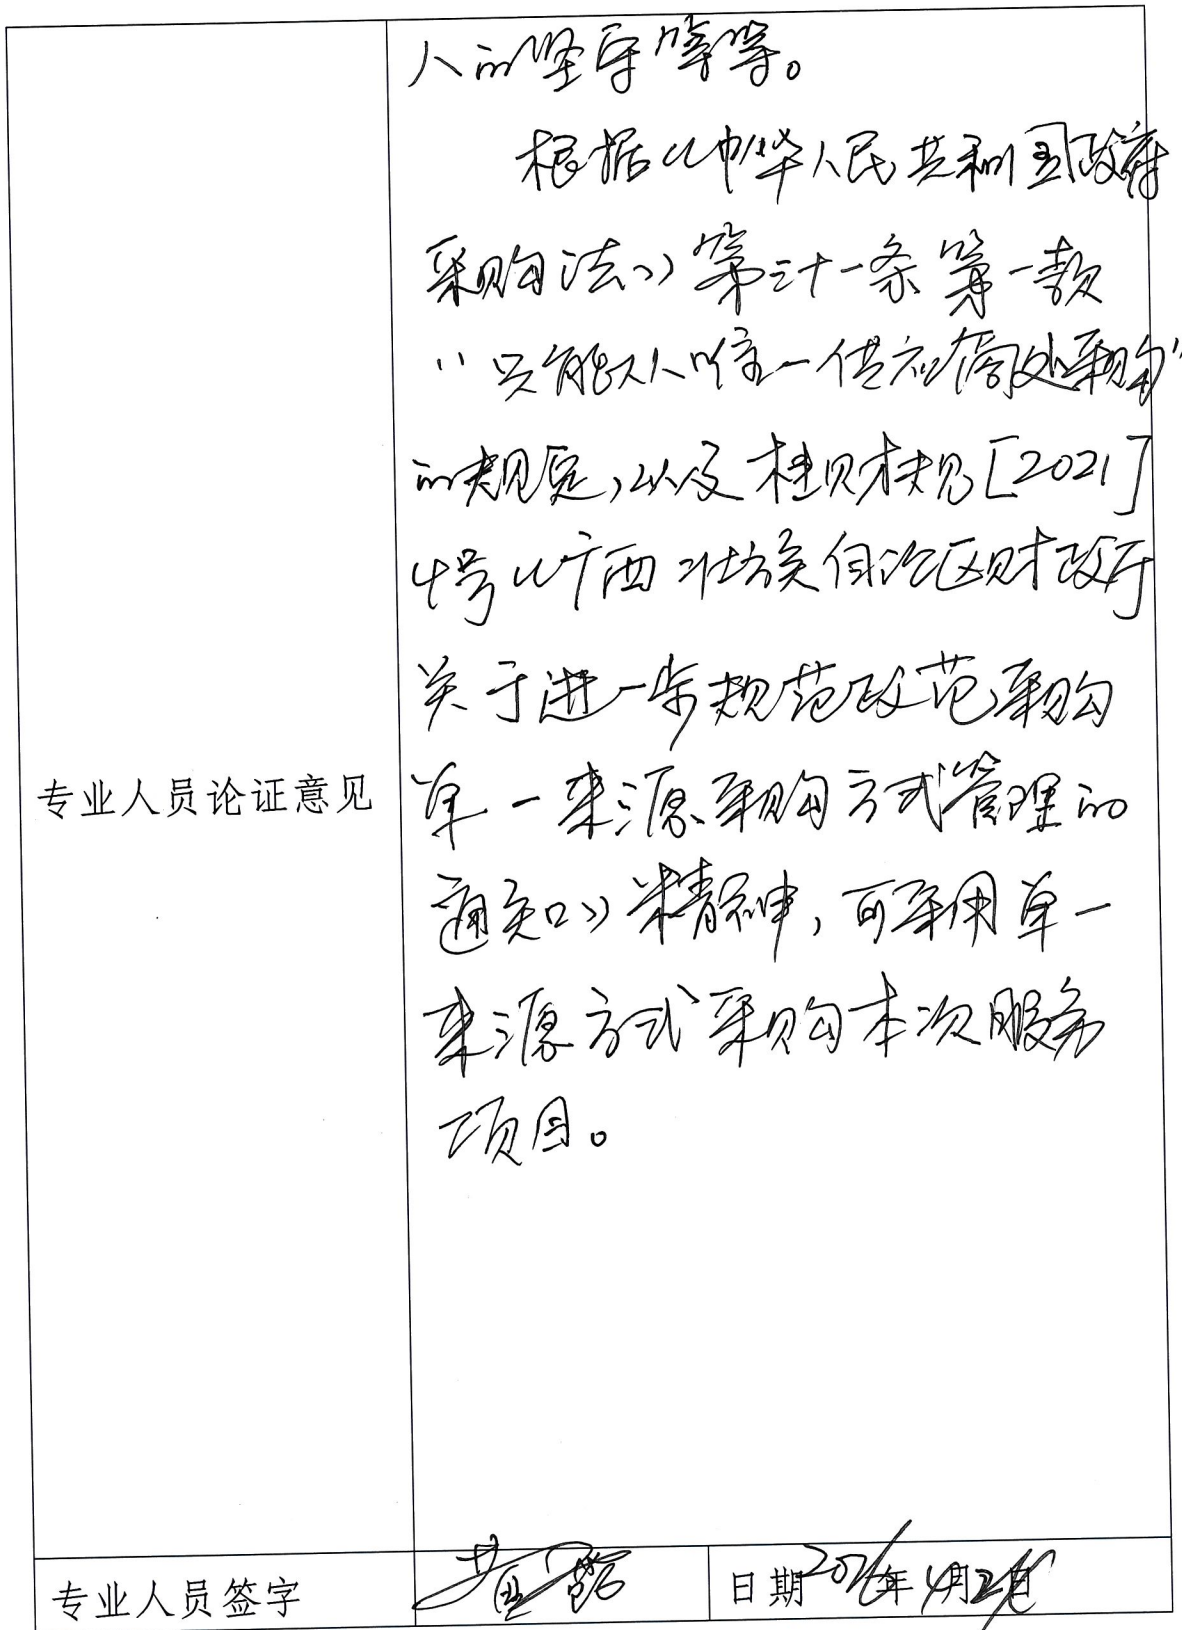 人的坚守等等。
根据《中华人民共和国政府
采购法》第三十一条第一款
“只能从唯一供应商处采购”
的规定，以及桂财规[2021]
4号《广西壮族自治区财政厅
关于进一步规范政范采购
单一来源采购方式管理的
通知》精神，可采用单一
来源方式采购本次服务
项目。
专业人员论证意见
专业人员签字
日期2026年4月2日